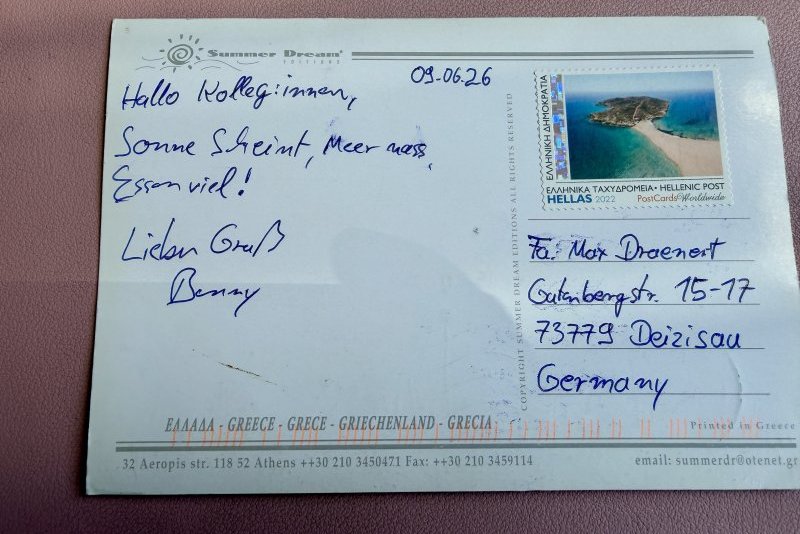 Summer Dream
EDITIONS
09.06.26
Hallo Kolleg:innen,
Sonne Scheint, Meer nass,
Essen viel!
Lieben Gruß
Benny
ΕΛΛΗΝΙΚΗ ΔΗΜΟΚΡΑΤΙΑ
ΕΛΛΗΝΙΚΑ ΤΑΧΥΔΡΟΜΕΙΑ • HELLENIC POST
HELLAS 2022 PostCards Worldwide
Fa. Max Draenert
Gutenbergstr. 15-17
73779 Deizisau
Germany
COPYRIGHT SUMMER DREAM EDITIONS ALL RIGHTS RESERVED
ΕΛΛΑΔΑ - GREECE - GRECE - GRIECHENLAND - GRECIA
Printed in Greece
32 Aeropis str. 118 52 Athens ++30 210 3450471 Fax: ++30 210 3459114
email: summerdr@otenet.gr